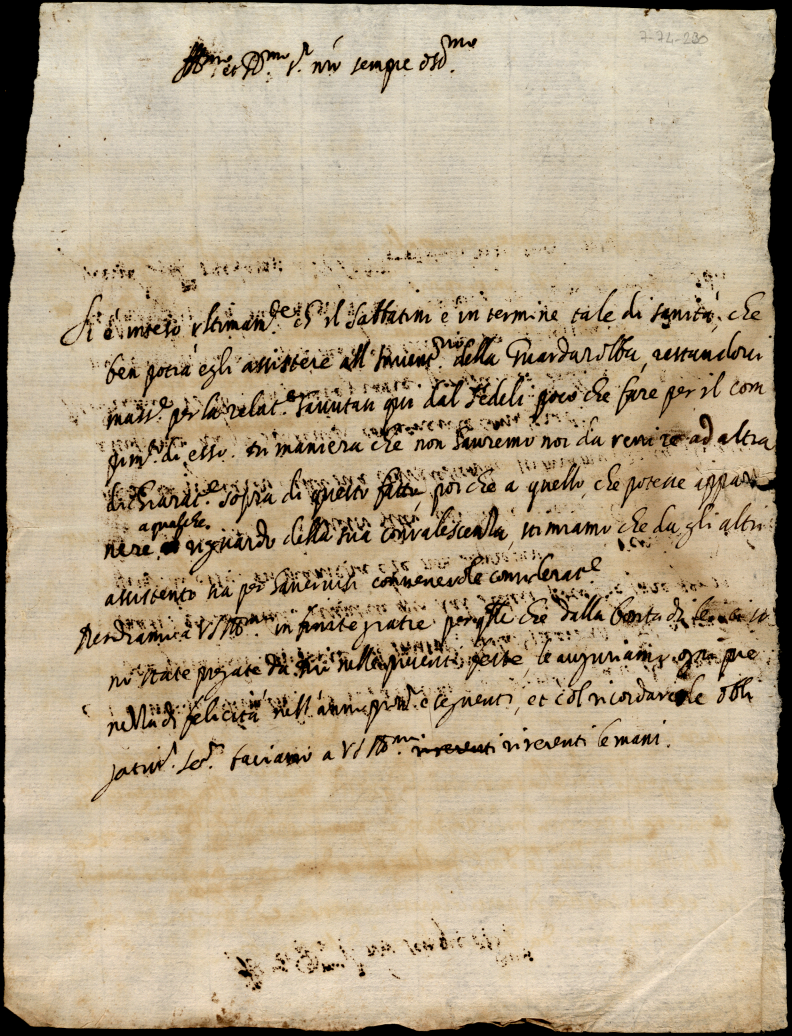 7-74-230
Ill.mo et R.mo S.r n'ro sempre oss.mo
Si è inteso ultimam.te ch' il Sabbatini è in termine tale di sanità, che
ben potrà egli assistere all' Invent.rio della Guardarobba, restandovi
mass.e per la relat.e havutasi qui dal Fedeli poco che fare per il com
pim.to di esso. in maniera che non havremo noi da venire ad altra
dichiarat.e sopra di questo fatto, poi che a quello, che potesse appar
nere a qualche riguardo della sua convalescenza, stimiamo che da gli altri
assistenti sia per havervisi convenevole considerat.e
Rendiamo a VS Ill.ma infinite gratie per q.lle che dalla bontà di
ni state pregate da Dio nelle presenti feste, le auguriamo ogni pie
nezza di felicità nell' anno pross.o e seguenti, et col ricordarcele obli
gatiss.i ser.ri baciamo a VS Ill.ma riverenti riverenti le mani.